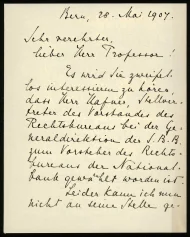 Bern, 28. Mai 1907.
Sehr verehrter,
lieber Herr Professor!
Es wird Sie zweifel-
los interessieren zu hören,
dass Herr Hafner, Stellver-
treter des Vorstandes des
Rechtsbureaus bei der Ge-
neraldirektion der S.B.B.
zum Vorsteher des Rechts-
bureaus der National-
bank gewählt worden ist.
Leider kann ich nun
nicht an seine Stelle ge-